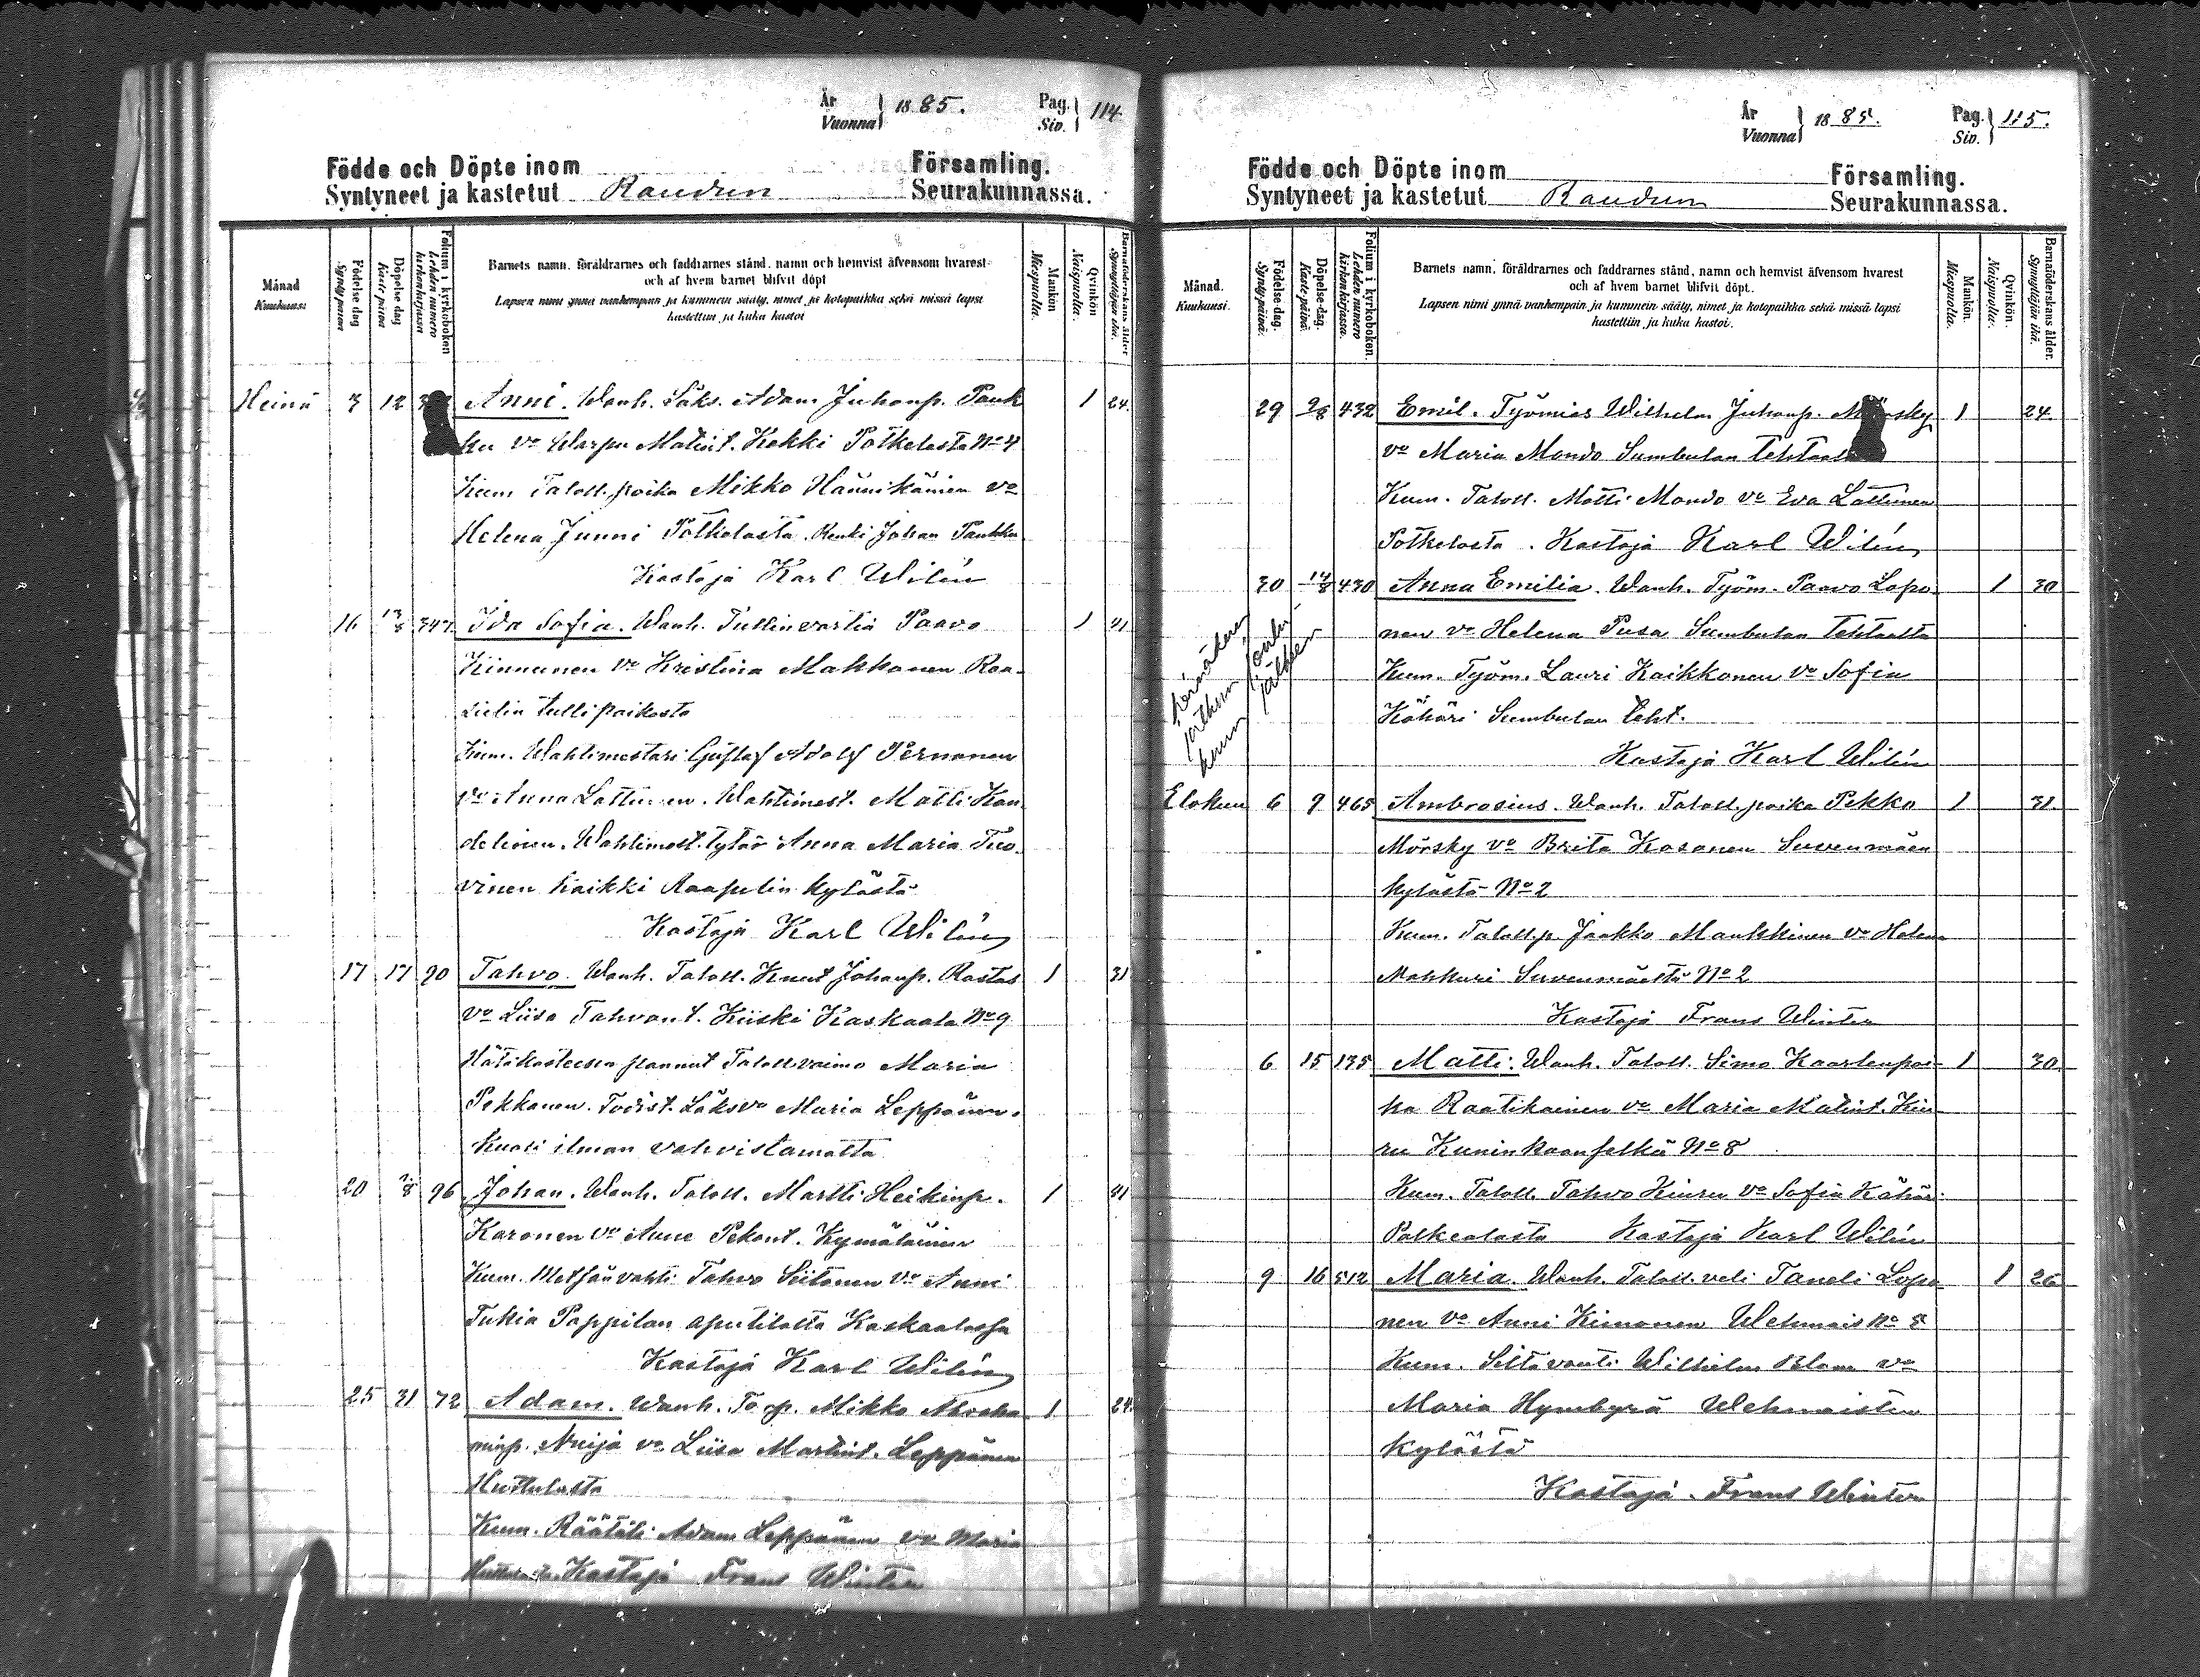 År
Vuonna } 1885. Pag. Siv. } 114
Födde och Döpte inom Församling.
Syntyneet ja kastetut Raudun Seurakunnassa.
Månad
Kuukausi
Födelse dag
Syntypäivä
Döpelse dag
Kastepäivä
Folium i kyrkoboken
Lehden numero kirkonkirjassa
Barnets namn, föräldrarnes och faddrarnes stånd, namn och hemvist äfvensom hvarest
och af hvem barnet blifvit döpt
Lapsen nimi ynnä vanhempain ja kummein sääty, nimet ja kotopaikka sekä missä lapsi
kastettiin ja kuka kastoi
Mankön
Miespuolta
Qvinkön
Naispuolta
Barnaföderskans ålder
Synnyttäjän ikä
Heinä 3 12 Anni. Wanh. Läks. Adam Juhonp. Pauk 1 24
ku vo Warpu Matint. Kekki Potkelasta No 4
Kum Taloll. poika Mikko Hännikäinen vo
Helena Junni Potkelasta. Renki Johan Paukku
Kastoja Karl Wilén
16 13/8 347 Ida Sofia. Wanh. Tullinvartia Paavo 1 41
Kinnunen vo Kristina Makkonen Raa-
sulin tullipaikasta
Kum. Wahtimestari Gustaf Adolf Pernonen
vo Anna Lattunen. Wahtimest. Matti Kan
delinen. Wahtimest. tytär Anna Maria Tuo
vinen kaikki Raapulin kylästä
Kastoja Karl Wilén
17 17 90 Tahvo. Wanh. Taloll. Knut Johanp. Rastas 1 31
vo Liisa Tahvont. Kiiski Kaskaala No 9
Hätäkasteesen pannut Taloll. vaimo Maria
Pekkonen. Todist. Läks. vo Maria Leppänen.
Kuoli ilman vahvistamatta
20 2/8 96 Johan. Wanh. Taloll. Martti Heikinp. 1 41
Karonen vo Anne Pekant. Kymäläinen
Kum. Metsänvahti Tahvo Siitonen vo Anni
Tukia Pappilan aputilalta Kaskaalassa
Kastoja Karl Wilén
25 31 72 Adam. Wanh. Torp. Mikko Abraha 1 24
minp. Nuija vo Liisa Martint. Leppänen
Huttulasta
Kum. Räätäli Adam Leppänen vo Maria
Kastoja Frans Winter
År
Vuonna } 1885. Pag. Siv. } 115.
Födde och Döpte inom Församling.
Syntyneet ja kastetut Raudun Seurakunnassa.
Månad.
Kuukausi.
Födelse-dag.
Syntypäivä.
Döpelse-dag.
Kastepäivä.
Folium i kyrkoboken.
Lehden numero kirkonkirjassa.
Barnets namn, föräldrarnes och faddrarnes stånd, namn och hemvist äfvensom hvarest
och af hvem barnet blifvit döpt.
Lapsen nimi ynnä vanhempain ja kummein sääty, nimet ja kotopaikka sekä missä lapsi
kastettiin ja kuka kastoi.
Mankön.
Miespuolta.
Qvinkön.
Naispuolta.
Barnaföderskans ålder.
Synnyttäjän ikä.
29 432 Emil. Työmies Wilhelm Juhanp. Mörsky 1 24
vo Maria Mondo Sumbulan tehtaalta
Kum. Taloll. Matti Mondo vo Eva Lattunen
Potkelasta. Kastoja Karl Wilén
30 14/8 430 Anna Emilia. Wanh. Työm. Paavo Lopo 1 30
nen vo Helena Pusa Sumbulan tehtaalta
Kum. Työm. Lauri Kaikkonen vo Sofia
Kähäri Sumbulan teht.
Kastoja Karl Wilén
Elokuu 6 9 465 Ambrosius. Wanh. Taloll. poika Pekko 1 31
Mörsky vo Brita Kosonen Suvenmäen
kylästä No 2
Kum. Taloll. p. Jaakko Maukkinen vo Helena
Mahkuri Suvenmäeltä No 2
Kastoja Frans Winter
6 15 135 Matti. Wanh. Taloll. Simo Kaarlenpoi 1 30
ka Raatikainen vo Maria Matint. Kiu
ru Kuninkaanselkä No 8
Kum. Taloll. Tahvo Kiuru vo Sofia Kähäri
Palkealasta Kastoja Karl Wilén
9 16 512 Maria. Wanh. Taloll. veli Taneli Lopo 1 26
nen vo Anni Kimonen Wehmais No 8
Kum. Siltavouti Wilhelm Blom vo
Maria Hymbyrä Wehmaisten
kylästä
Kastoja. Frans Winter